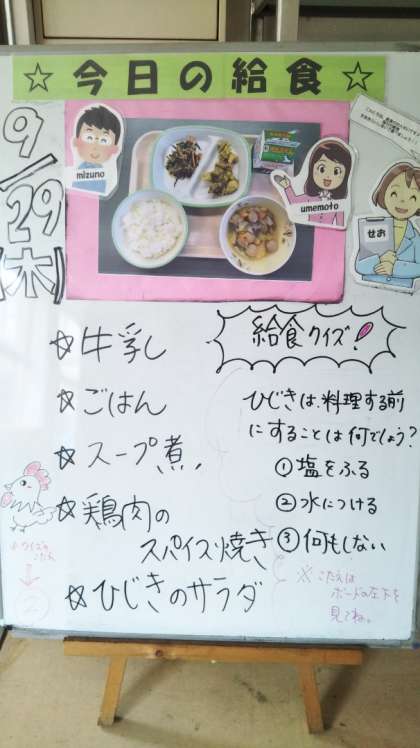 ☆今日の給食☆
9/29(木)
mizuno
umemoto
せお
☆牛乳
☆ごはん
☆スープ煮
☆鶏肉の
スパイス焼き
☆ひじきのサラダ
給食クイズ!
ひじきは、料理する前
にすることは何でしょう?
①塩をふる
②水につける
③何もしない
※こたえは
ボードの左下を
見てね。
↓
②